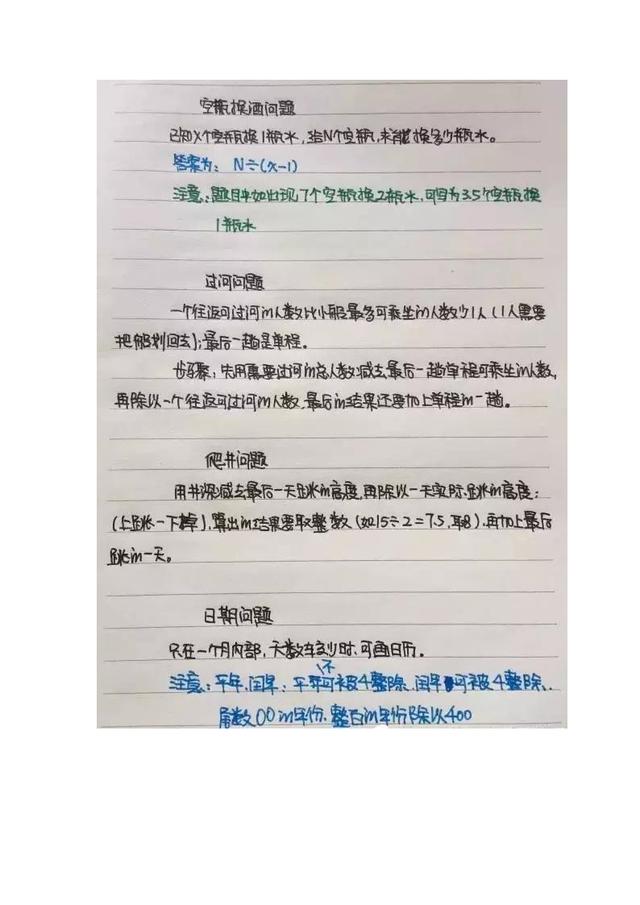 空瓶换酒问题
已知X个空瓶换1瓶水，给N个空瓶，求能换多少瓶水。
答案为：N÷(x-1)
注意：题目中如出现7个空瓶换2瓶水，可因为3.5个空瓶换
1瓶水
过河问题
一个往返可过河的人数比小船最多可乘坐的人数少1人（1人需要
把船划回去）；最后一趟是单程。
步骤：先用需要过河的总人数减去最后一趟单程可乘坐的人数，
再除以一个往返可过河的人数，最后的结果还要加上单程的一趟。
爬井问题
用井深减去最后一天跳的高度，再除以一天实际跳的高度：
（上跳-下掉），算出的结果要取整数（如15÷2=7.5，取8），再加上最后
跳的一天。
日期问题
只在一个月内部，天数较少时，可画日历。
注意：平年、闰年：平年不可被4整除、闰年可被4整除、
尾数00的年份、整百的年份除以400